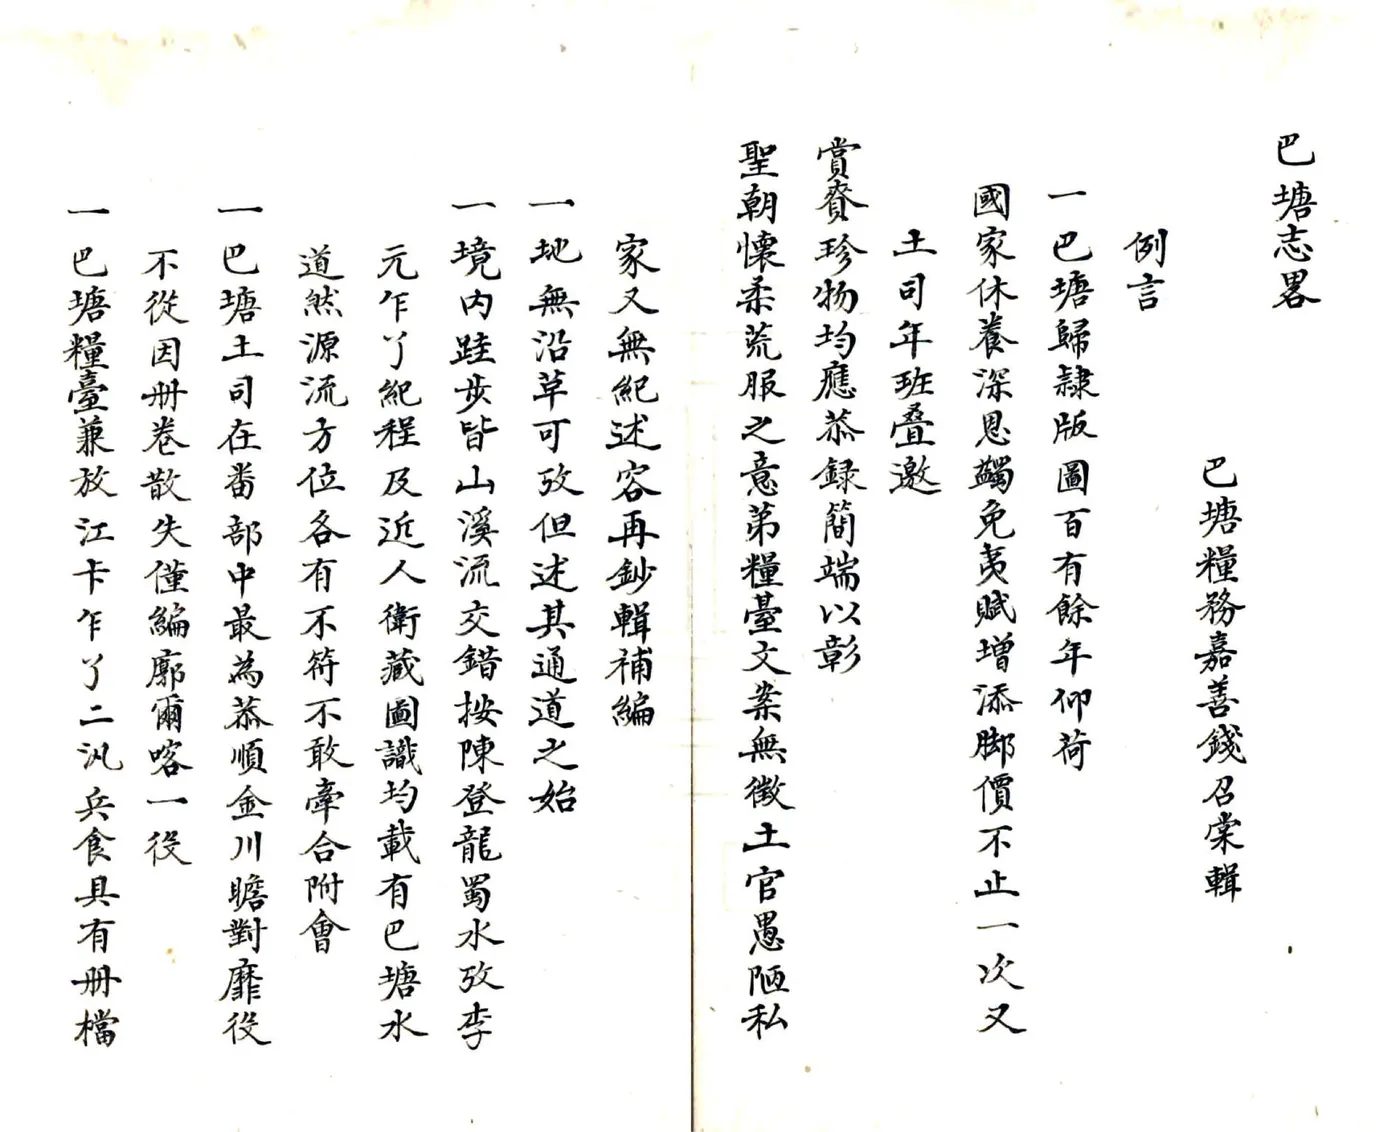 巴塘志畧
巴塘糧務嘉善錢召棠輯
例言
一巴塘歸隷版圖百有餘年仰荷
國家休養深恩蠲免夷賦增添脚價不止一次又
土司年班叠邀
賞賚珍物均應恭録簡端以彰
聖朝懷柔荒服之意第糧臺文案無徵土官愚陋私
家又無紀述容再鈔輯補編
一地無沿草可攷但述其通道之始
一境内跬步皆山溪流交錯按陳登龍蜀水攷李
元乍丫紀程及近人衛藏圖識均載有巴塘水
道然源流方位各有不符不敢牽合附會
一巴塘土司在番部中最為恭順金川瞻對靡役
不從因册卷散失僅編廓爾喀一役
一巴塘糧臺兼放江卡乍丫二汎兵食具有册檔